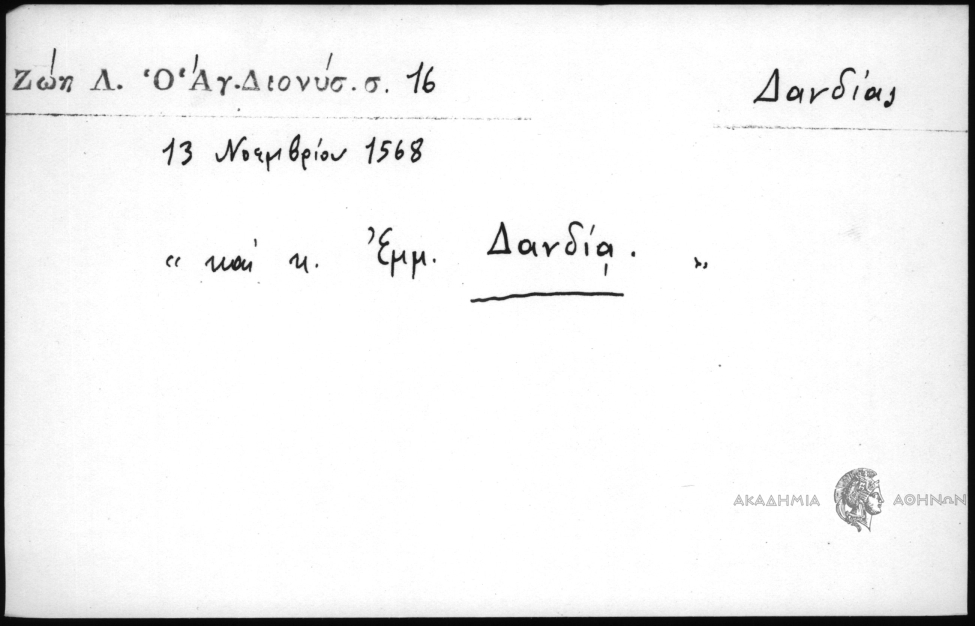 Ζώη Λ. Ὁ Ἅγ. Διονύσ. σ. 16
Δανδίας
13 Νοεμβρίου 1568
« καὶ κ. Ἐμμ. Δανδίᾳ. »
ΑΚΑΔΗΜΙΑ ΑΘΗΝΩΝ